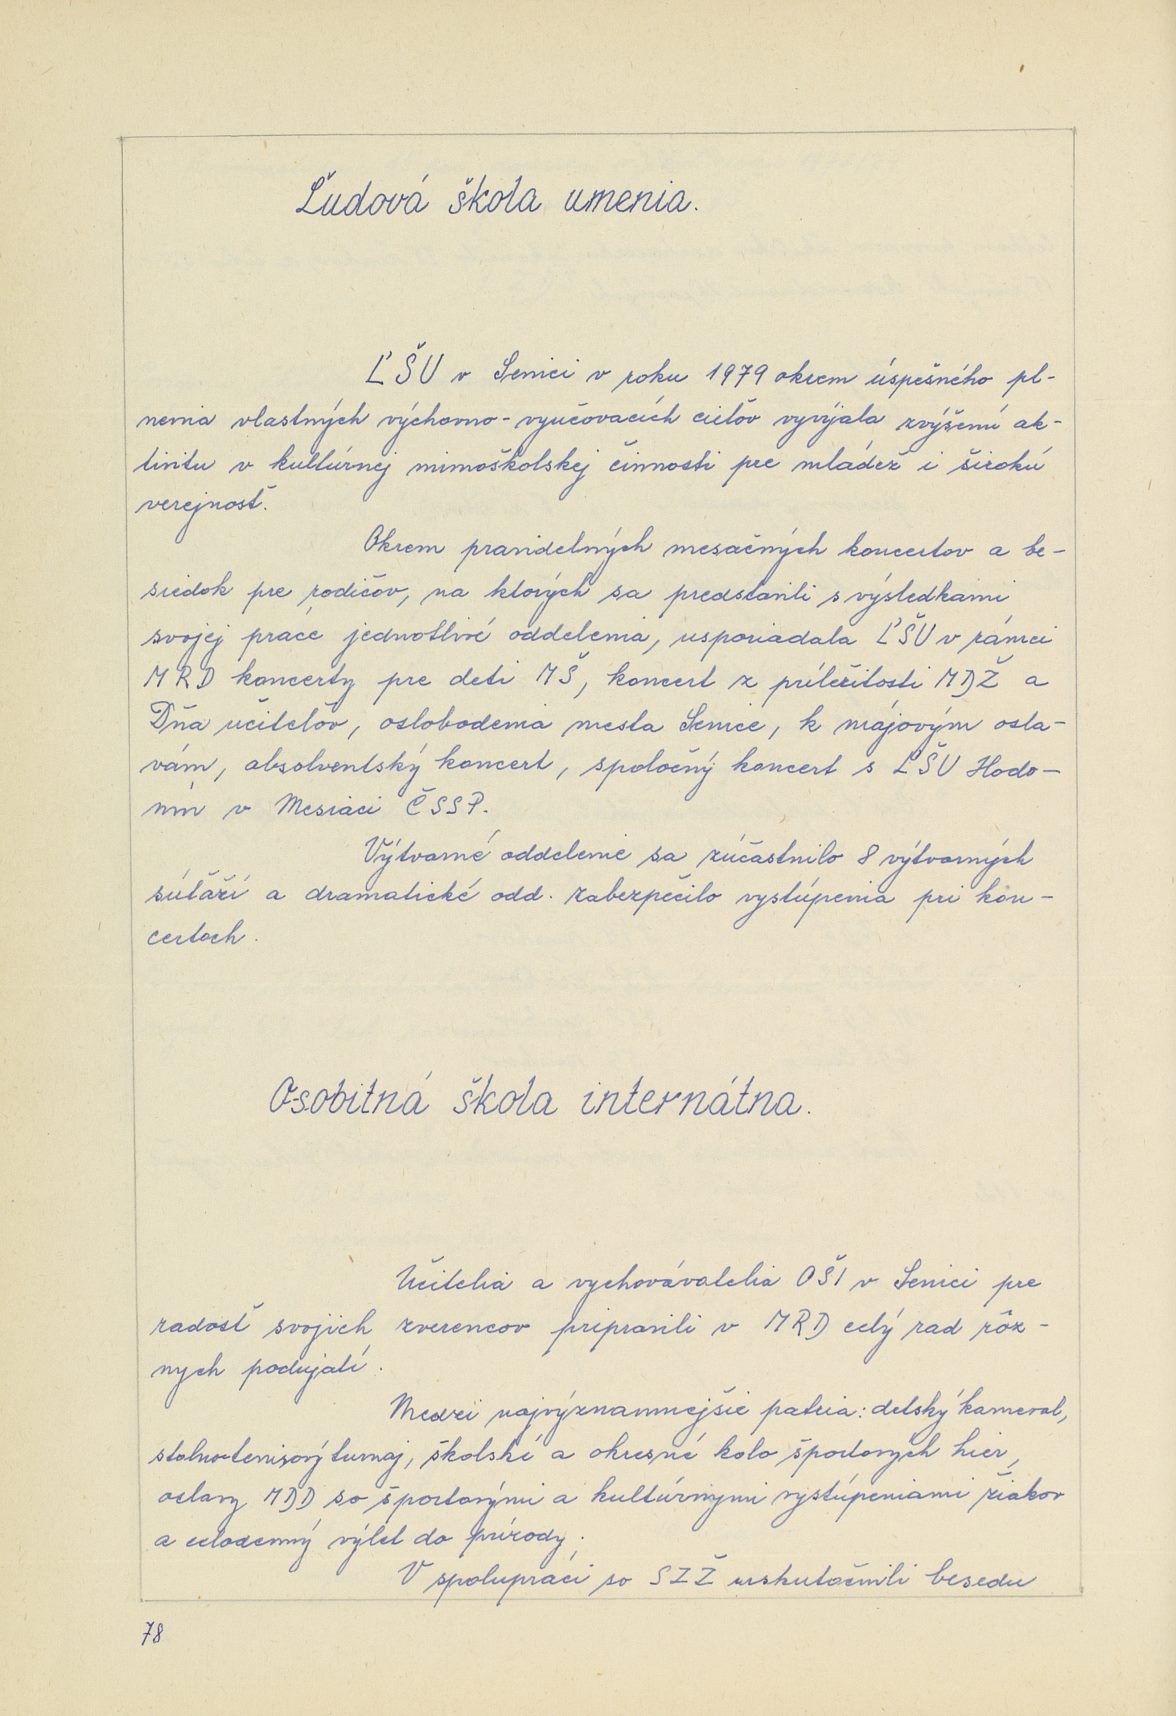 Ľudová škola umenia.
ĽŠU v Senici v roku 1979 okrem úspešného pl-
nenia vlastných výchovno-vyučovacích cieľov vyvýjala zvýšenú ak-
tivitu v kultúrnej mimoškolskej činnosti pre mládež i širokú
verejnosť.
Okrem pravidelných mesačných koncertov a be-
siedok pre rodičov, na ktorých sa predstavili s výsledkami
svojej práce jednotlivé oddelenia, usporiadala ĽŠU v rámci
MRD koncerty pre deti MŠ, koncert z príležitosti MDŽ a
Dňa učiteľov, oslobodenia mesta Senice, k májovým osla-
vám, absolventský koncert, spoločný koncert s ĽŠU Hodo-
nín v Mesiaci ČSSP.
Výtvarné oddelenie sa zúčastnilo 8 výtvarných
súťaží a dramatické odd. zabezpečilo vystúpenia pri kon-
certoch.
Osobitná škola internátna.
Učitelia a vychovávatelia OŠI v Senici pre
radosť svojich zverencov pripravili v MRD celý rad rôz-
nych podujatí.
Medzi najvýznamnejšie patria: detský karneval,
stolnotenisový turnaj, školské a okresné kolo športových hier,
oslavy MDD so športovými a kultúrnymi vystúpeniami žiakov
a celodenný výlet do prírody.
V spolupráci so SZŽ uskutočnili besedu
78